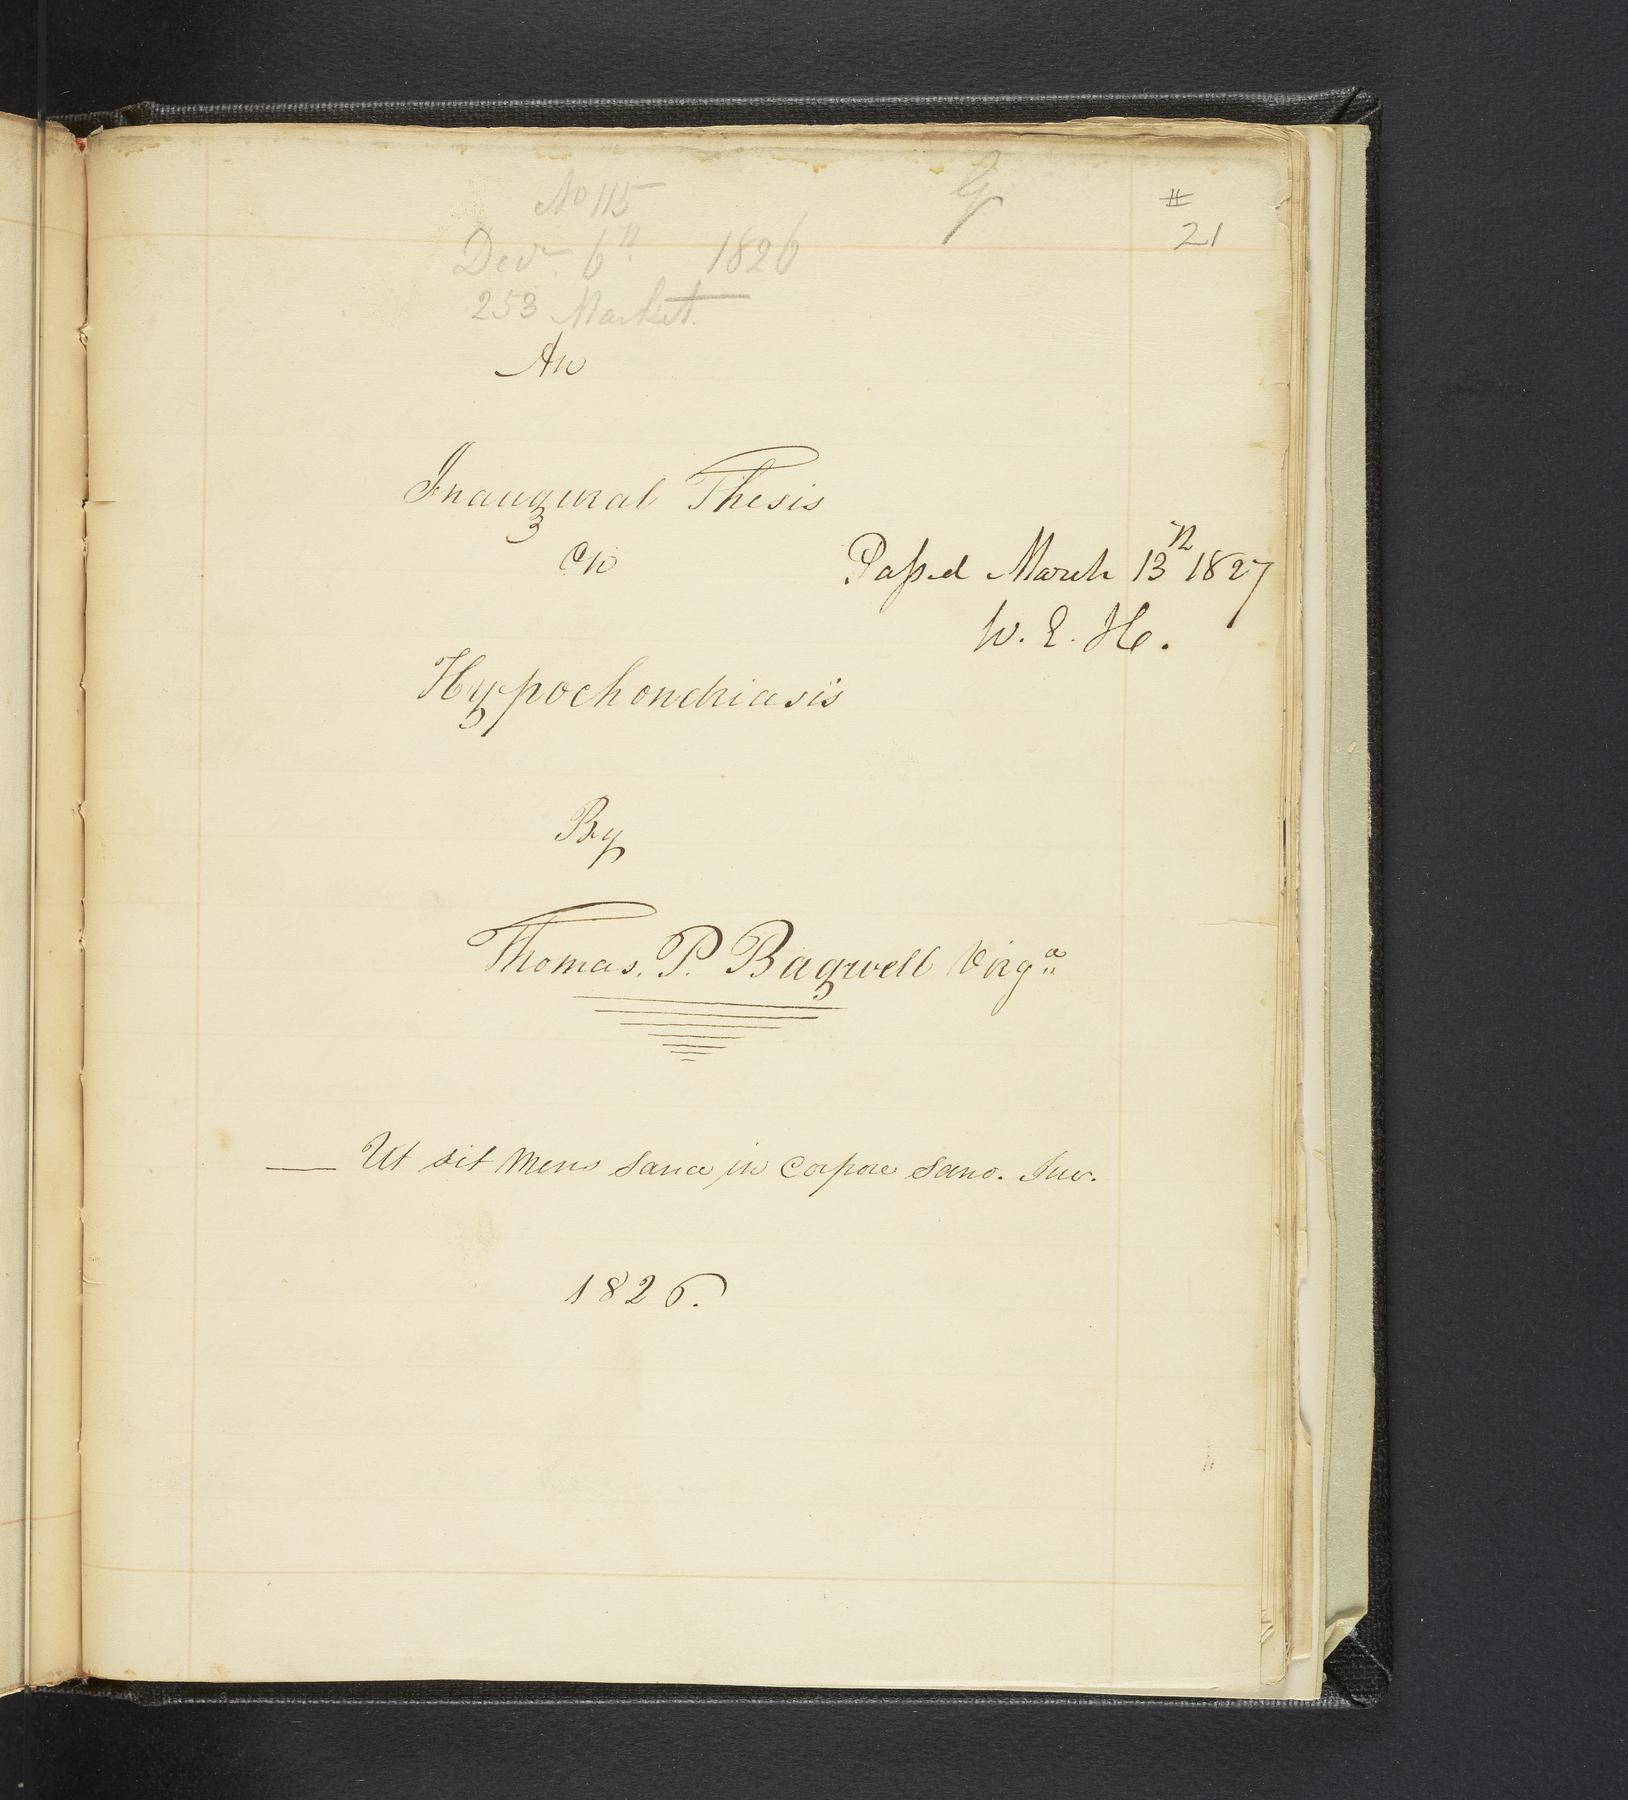 No 115
# 21
Decr. 6th 1826
253 Market
An
Inaugural Thesis
on
Passed March 13th 1827
W. E. H.
Hypochondriasis
By
Thomas. P. Bagwell Virga
— Ut sit Mens Sana in Corpore Sano. Juv.
1826.